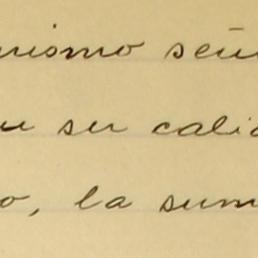 mismo señ
su cali
o, la sum